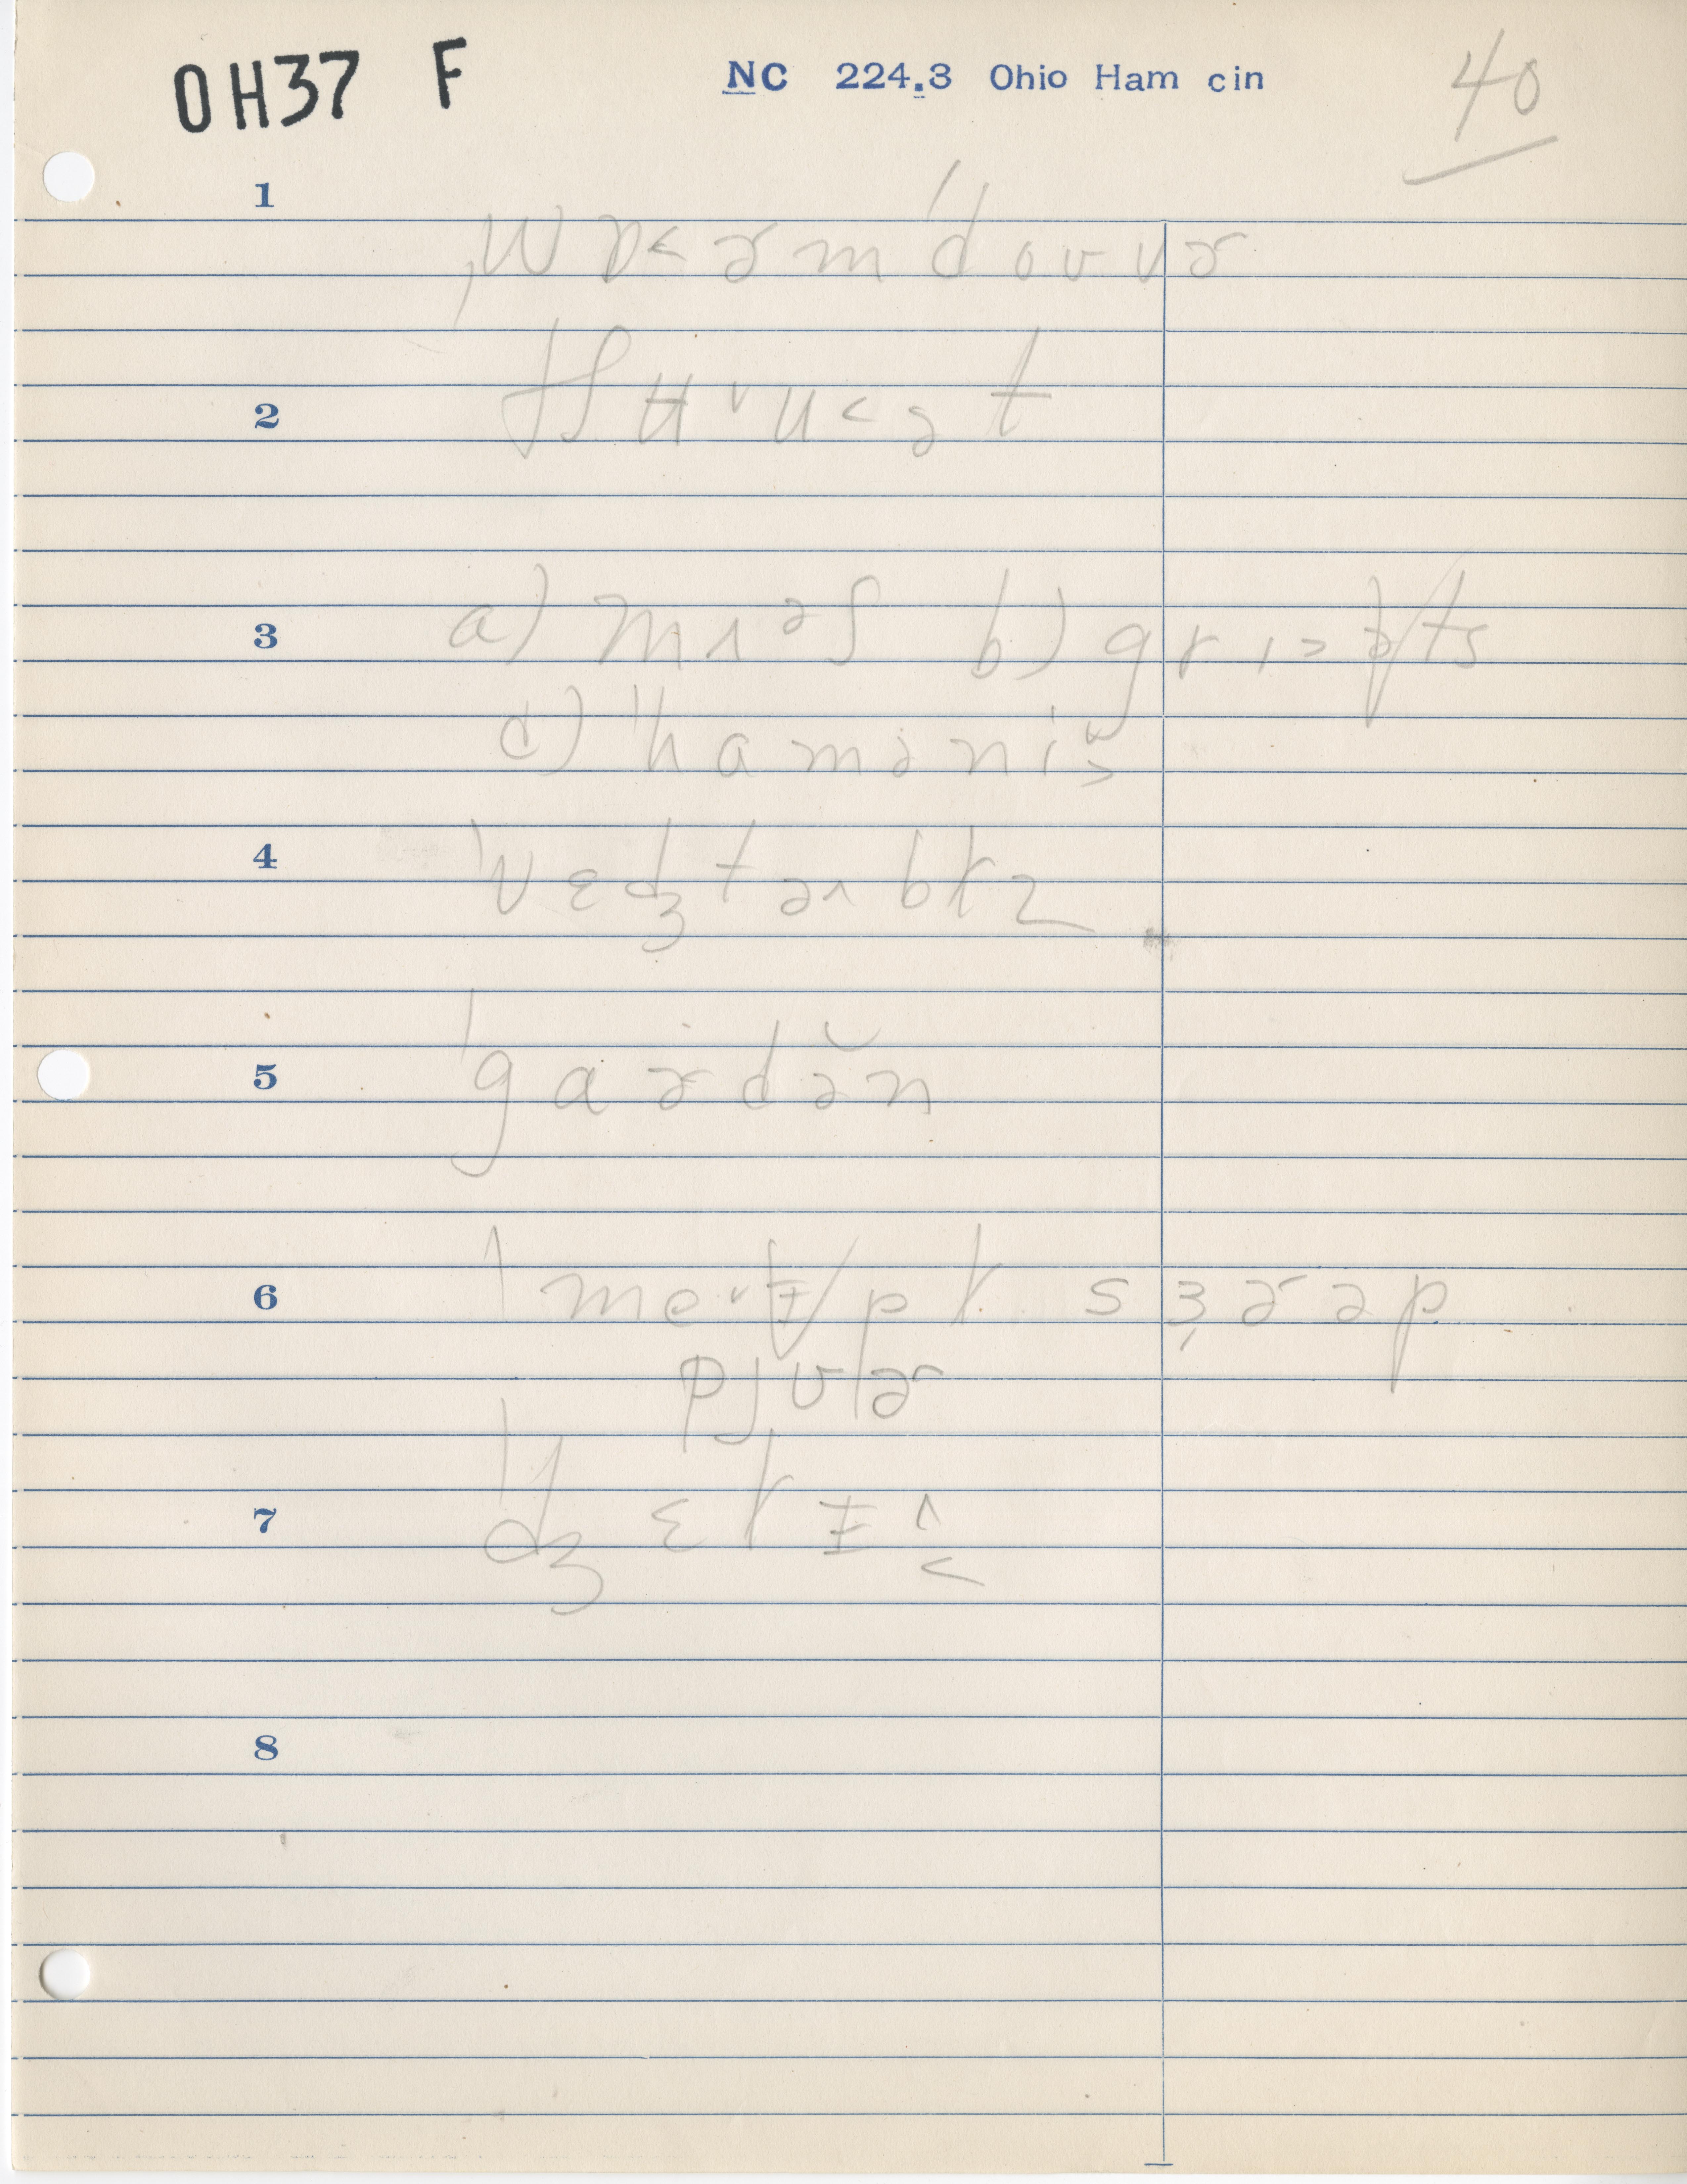 OH37 F NC 224.3 Ohio Ham cin 40
1 ˌwɒ˂ɚmˈdoʊvɚ
2 tʃʉ˅u˂ət
3 a) mʌəʃ b) grɪ˃ts
c) ˈhamənɪ
4 ˈvɛdʒtəʌbɫz
5 ˈgaɚdə̆n
6 ˈmepɫ sɜɚəp
pjʊlɚ
7 ˈdʒɛɫɨ
8